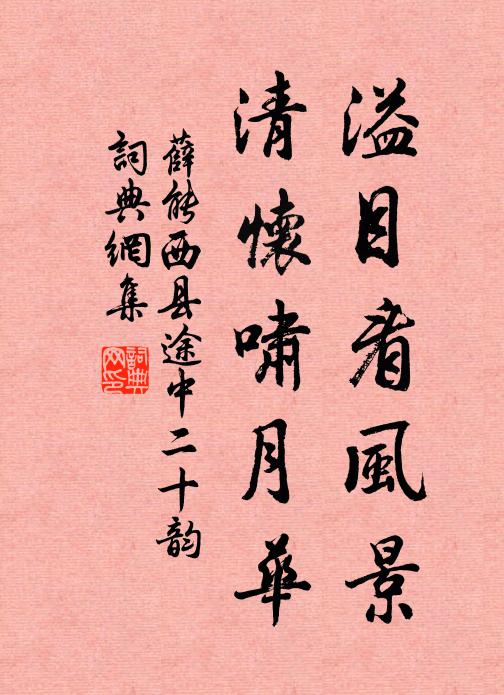 溢目看風景
清懷嘯月華
薛能西县途中二十韵
詞典網集
詞典网印